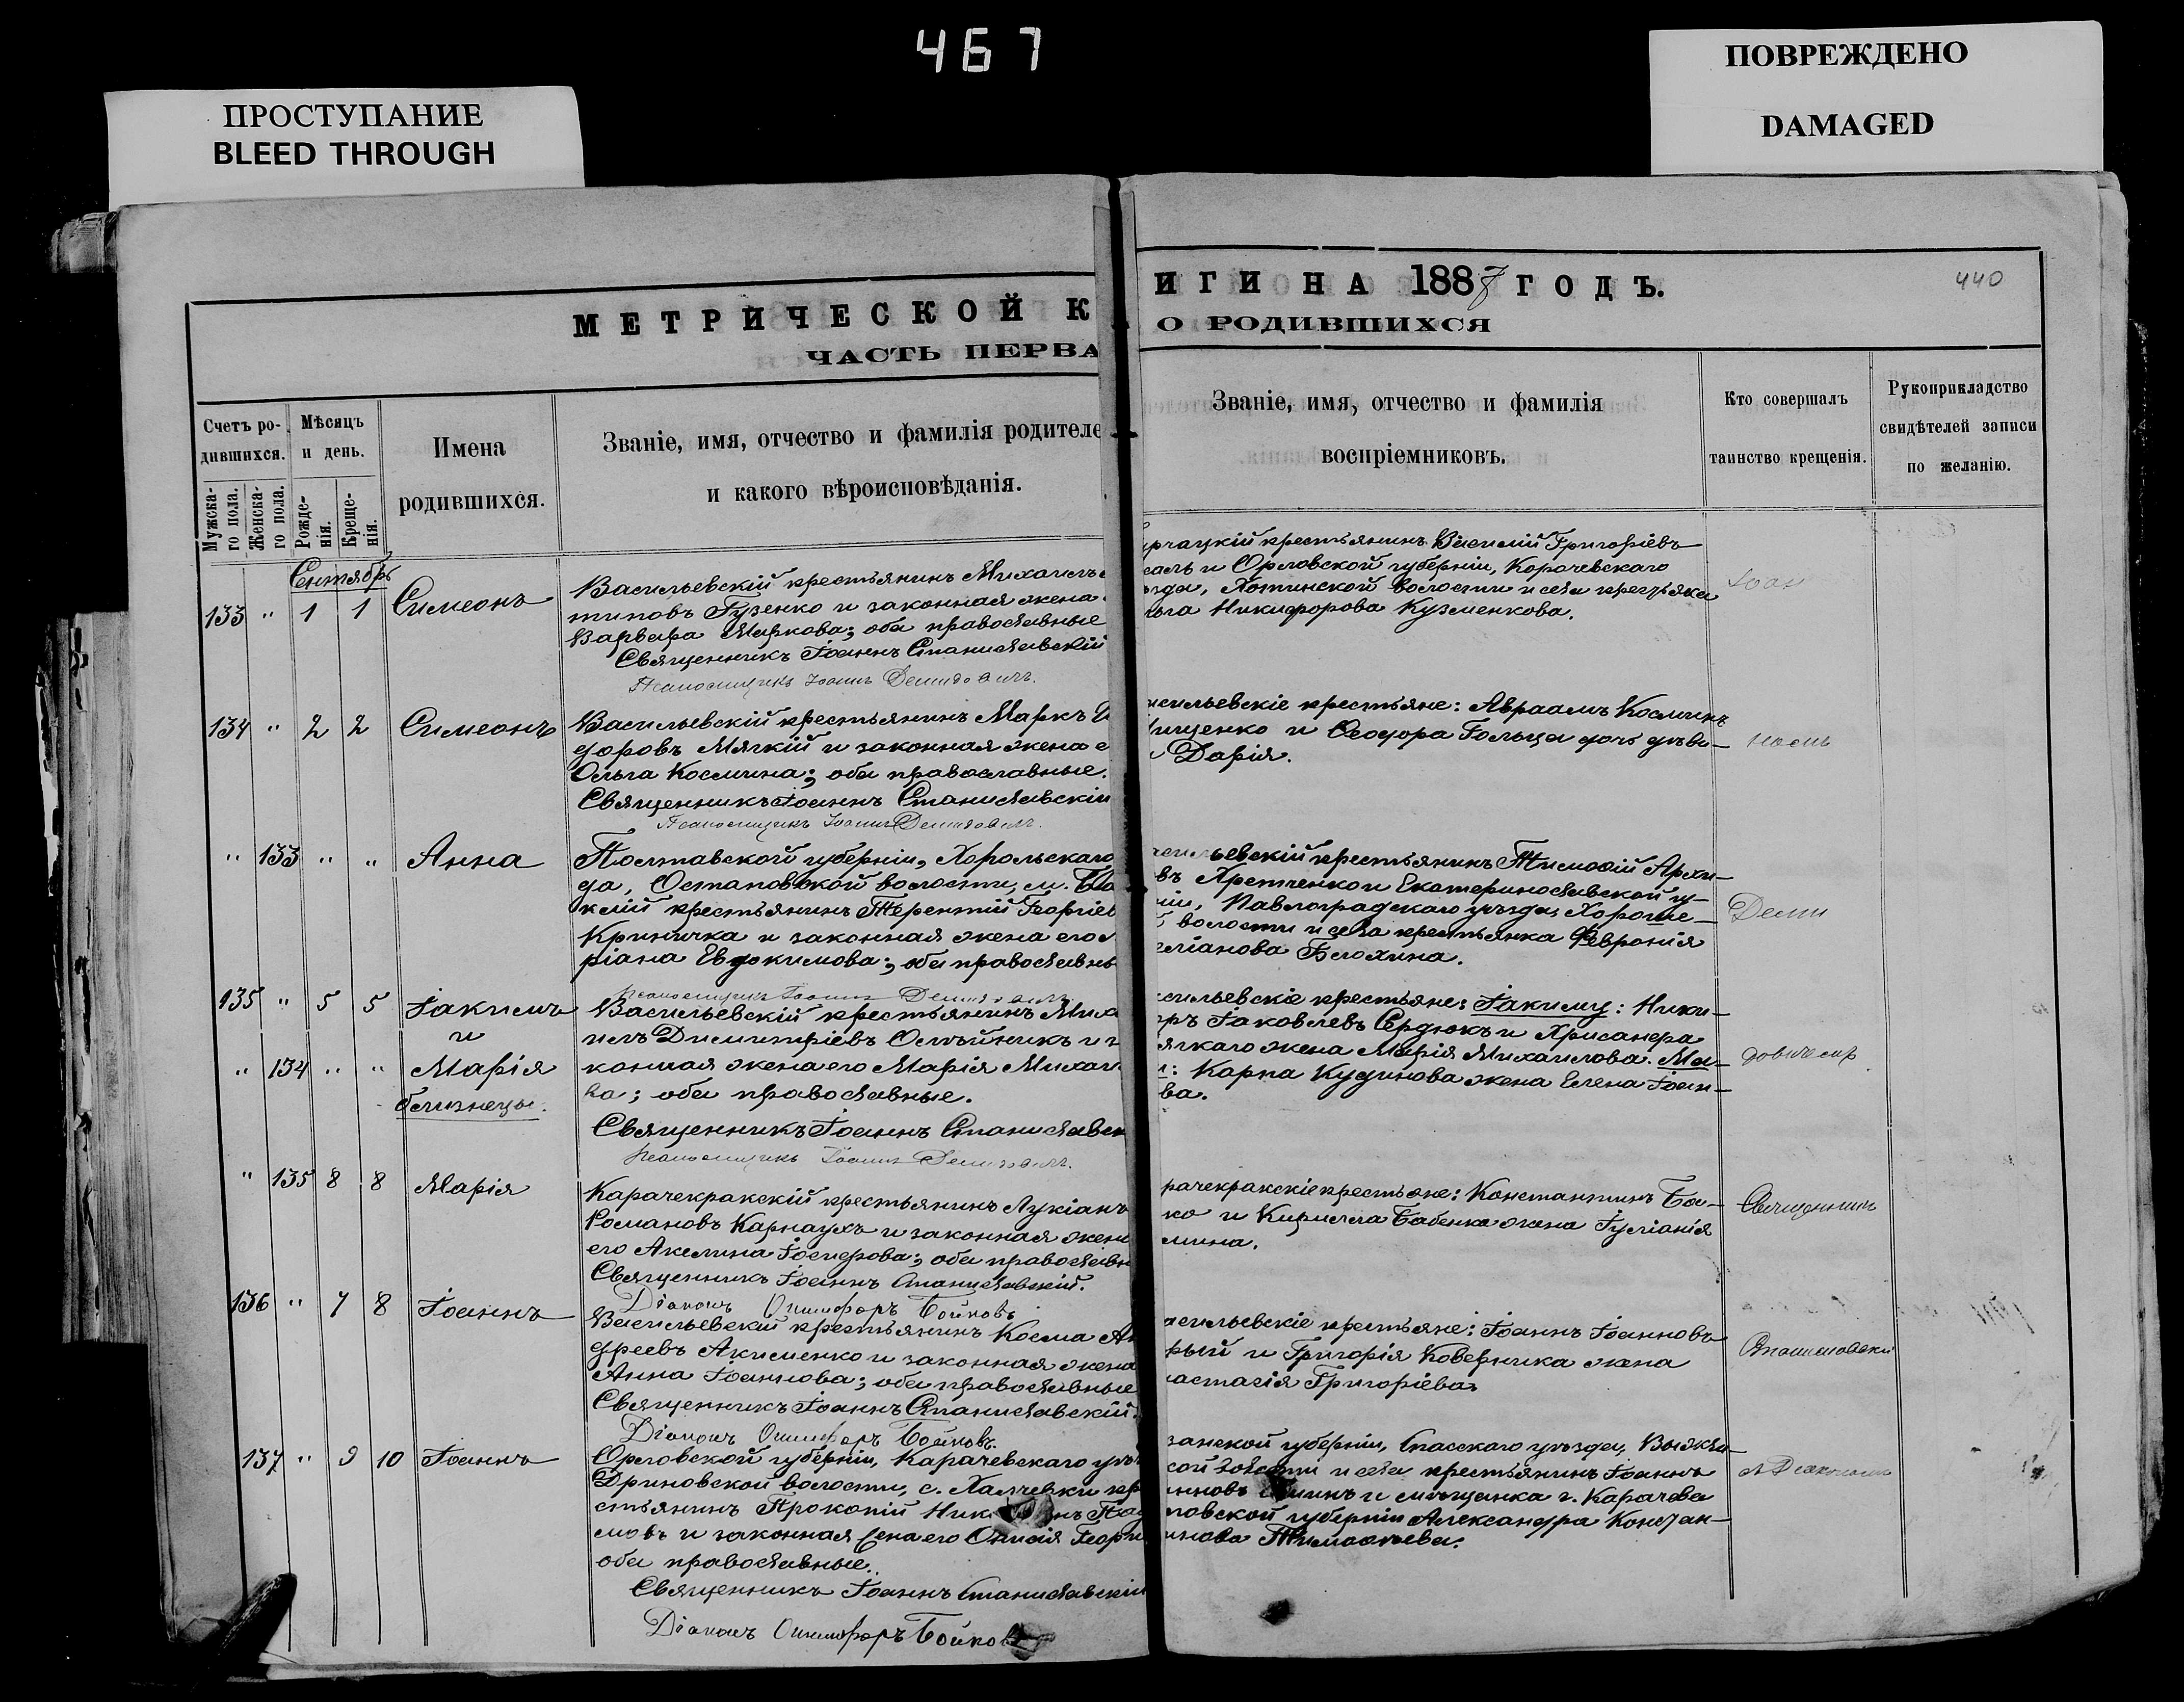 467
ПРОСТУПАНИЕ
BLEED THROUGH
ПОВРЕЖДЕНО
DAMAGED
440
МЕТРИЧЕСКОЙ К
ЧАСТЬ ПЕРВА
ИГИ НА 1887 ГОДЪ.
О РОДИВШИХСЯ
Счетъ ро-
дившихся.
Мужска-
го пола.
Женска-
го пола.
Мѣсяцъ
и день.
Рожде-
нія.
Креще-
нія.
Имена
родившихся.
Званіе, имя, отчество и фамилія родителе
и какого вѣроисповѣданія.
Званіе, имя, отчество и фамилія
воспріемниковъ.
Кто совершалъ
таинство крещенія.
Рукоприкладство
свидѣтелей записи
по желанію.
Сентябрь
133 " 1 1 Симеонъ
Васильевскій крестьянинъ Михаилъ
типовъ Гузенко и законная жена
Варвара Маркова; оба православные
Священникъ Іоаннъ Станиславскій
Псаломщикъ Іоаннъ Демидовичъ.
крестьянинъ Василій Григоріевъ
и Орловской губерніи, Корачевскаго
Хотинской волости и села крестьянка
Никифорова Кузменкова.
Іоан
134 " 2 2 Симеонъ
Васильевскій крестьянинъ Маркъ
доровъ Мягкій и законная жена е
Ольга Космина; оба православные.
Священникъ Іоаннъ Станиславскій
Псаломщикъ Іоаннъ Демидовичъ.
асильевскіе крестьяне: Авраамъ Косминъ
ищенко и Ѳеодора Гольца дочь дѣви-
Дарія.
номъ
" 133 " " Анна
Полтавской губерніи, Хорольскаго
да, Остаповской волости, м.
крестьянинъ Терентій Георгіев
Криничка и законная жена его
ріана Евдокимова; оба православны
Псаломщикъ Іоаннъ Демидовичъ
асильевскій крестьянинъ Тимоѳій Архи-
въ Хретченко и Екатеринославской гу-
ніи, Павлоградскаго уѣзда, Хороше-
й волости и села крестьянка Февронія
еліанова Блохина.
Деми
135 " 5 5 Іакимъ
и
" 134 " " Марія
близнецы.
Васильевскій крестьянинъ Миха
илъ Димитріевъ Олѣйникъ и з
конная жена его Марія Михаил
ва; оба православные.
Священникъ Іоаннъ Станиславск
Псаломщикъ Іоаннъ Демидовичъ.
асильевскіе крестьяне: Іакиму: Ники-
ръ Іаковлевъ Сердюкъ и Хрисанфа
ягкаго жена Марія Михаилова. Ма-
и: Карпа Кудинова жена Елена Іоан-
ва.
довичемъ
" 135 8 8 Марія
Карачекракскій крестьянинъ Лукіанъ
Романовъ Карнаухъ и законная жена
его Акилина Іосифова; оба православн
Священникъ Іоаннъ Станиславскій.
Діаконъ Онисифоръ Бойковъ
рачекракскіе крестьяне: Константинъ Ба-
ко и Кирилла Бабенка жена Іуліанія
мина.
Священникъ
136 " 7 8 Іоаннъ
Васильевскій крестьянинъ Косма Ан
дреевъ Акименко и законная жена
Анна Іоаннова; оба православные
Священникъ Іоаннъ Станиславскій.
Діаконъ Онисифоръ Бойковъ.
асильевскіе крестьяне: Іоаннъ Іоанновъ
рый и Григорія Коверника жена
астасія Григоріева.
Станиславскій
137 " 9 10 Іоаннъ
Орловской губерніи, Карачевскаго уѣз
Дриновской волости, с. Халчевки кре
стьянинъ Прокопій
мовъ и законная жена его Георгі
оба православные.
Священникъ Іоаннъ Станиславскій
Діаконъ Онисифоръ Бойковъ
занской губерніи, Спасскаго уѣзда,
ской волости и села крестьянинъ Іоаннъ
анновъ и мѣщанка г. Карачева
ловской губерніи Александра Констан-
инова Тимоѳеева.
с Діакономъ